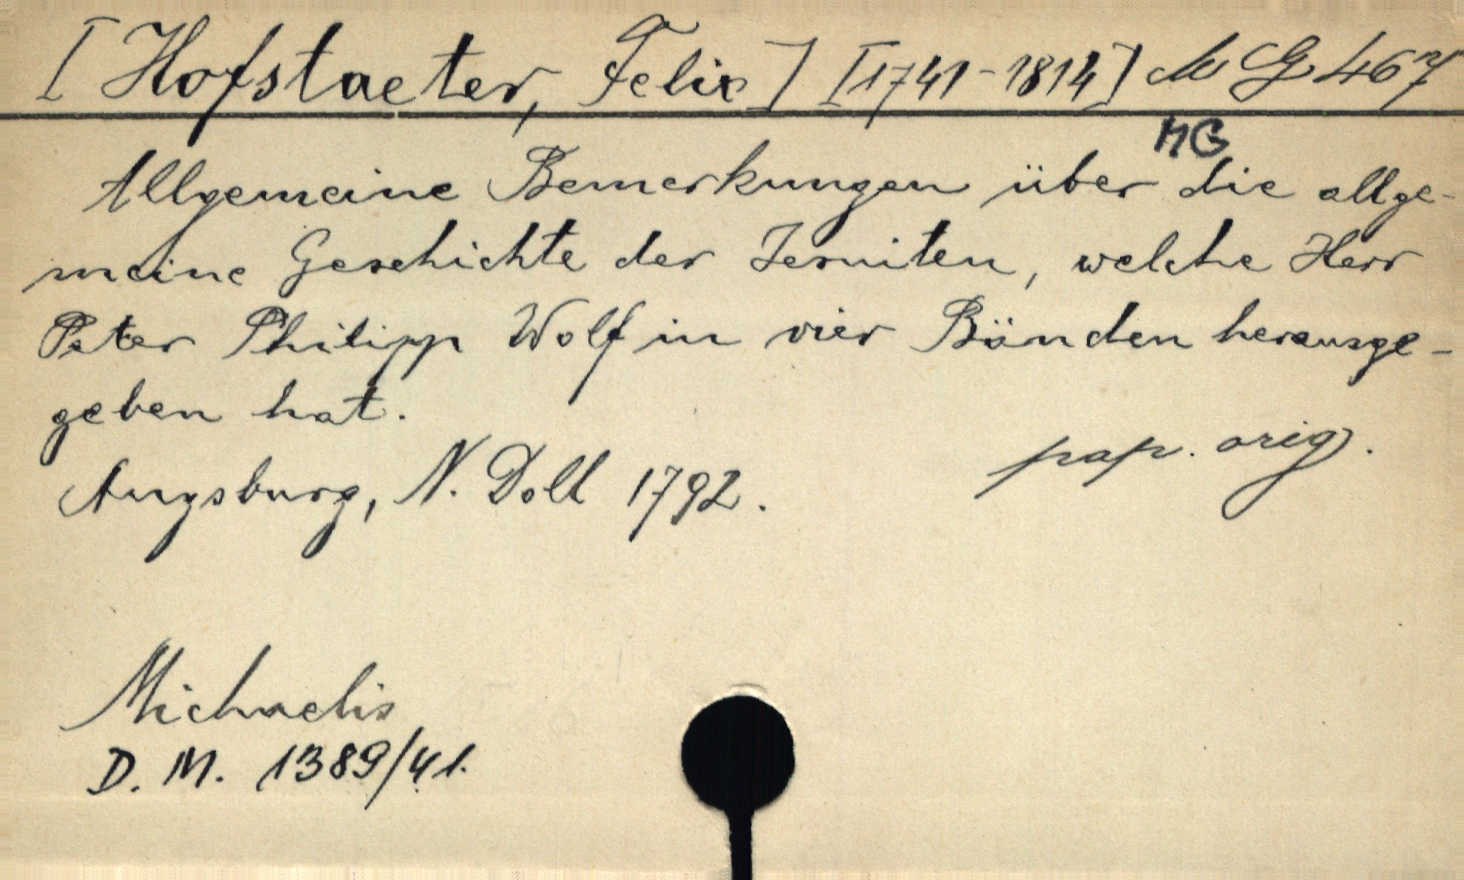 [Hofstaeter, Felix] [1741-1814] MG 467
MG
Allgemeine Bemerkungen über die allge-
meine Geschichte der Jesuiten, welche Herr
Peter Philipp Wolf in vier Bänden herausge-
geben hat.
pap. orig.
Augsburg, N. Doll 1792.
Michaelis
D. M. 1389/41.